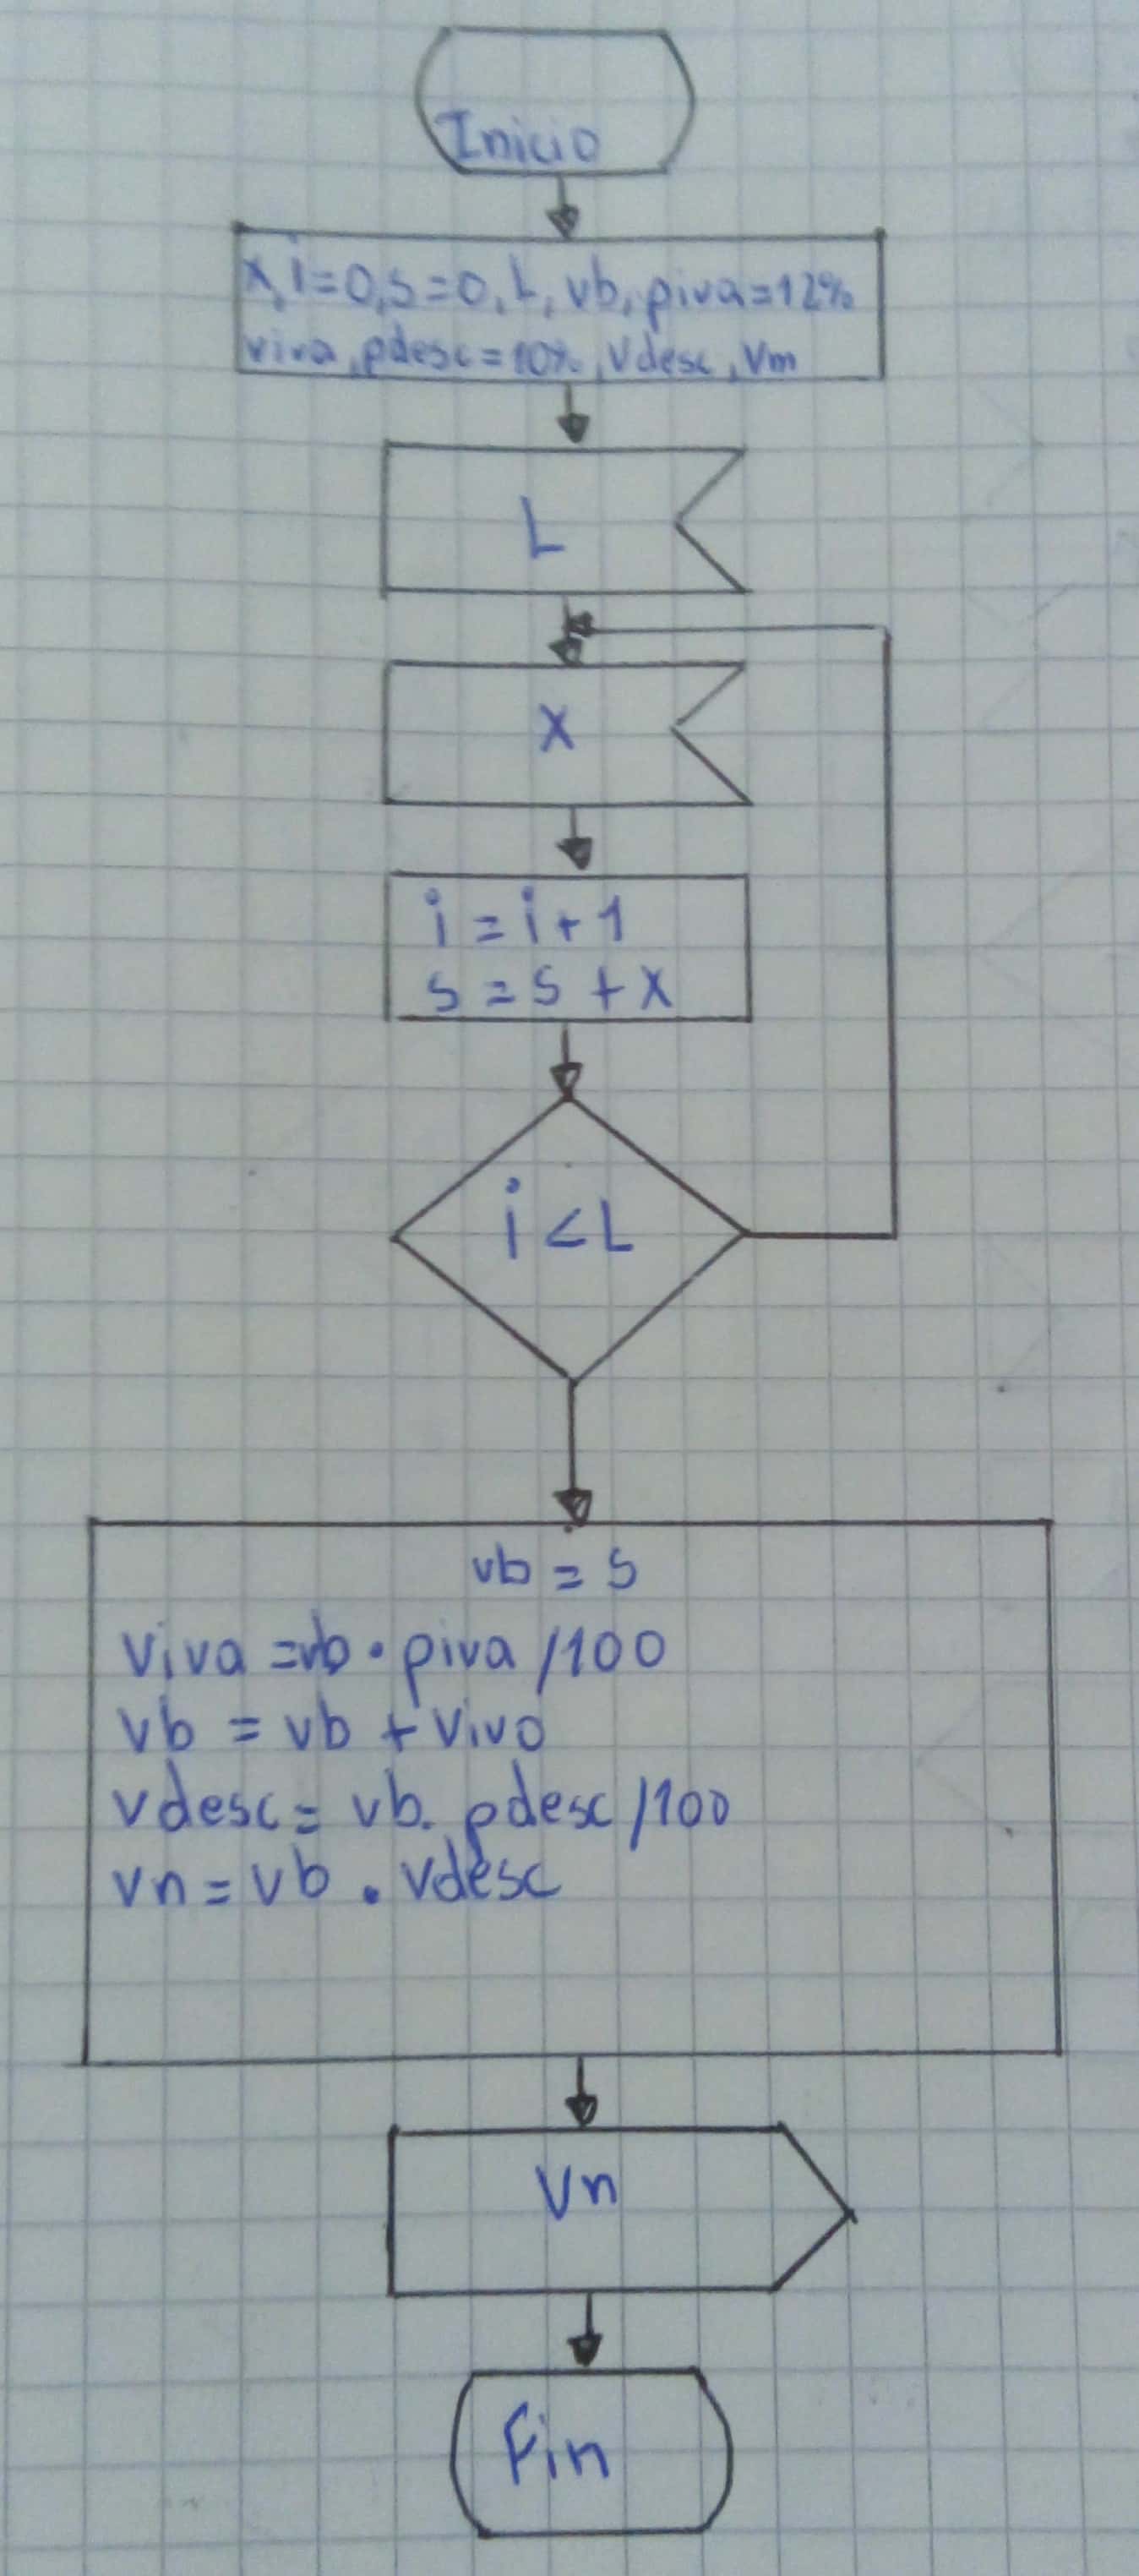 Inicio
x, i=0, s=0, L, vb, piva=12%
viva, pdesc=10%, Vdesc, Vm
L
X
i = i + 1
s = s + x
i < L
vb = s
viva = vb · piva /100
vb = vb + vivo
vdesc = vb. pdesc /100
vn = vb . vdesc
Vn
Fin